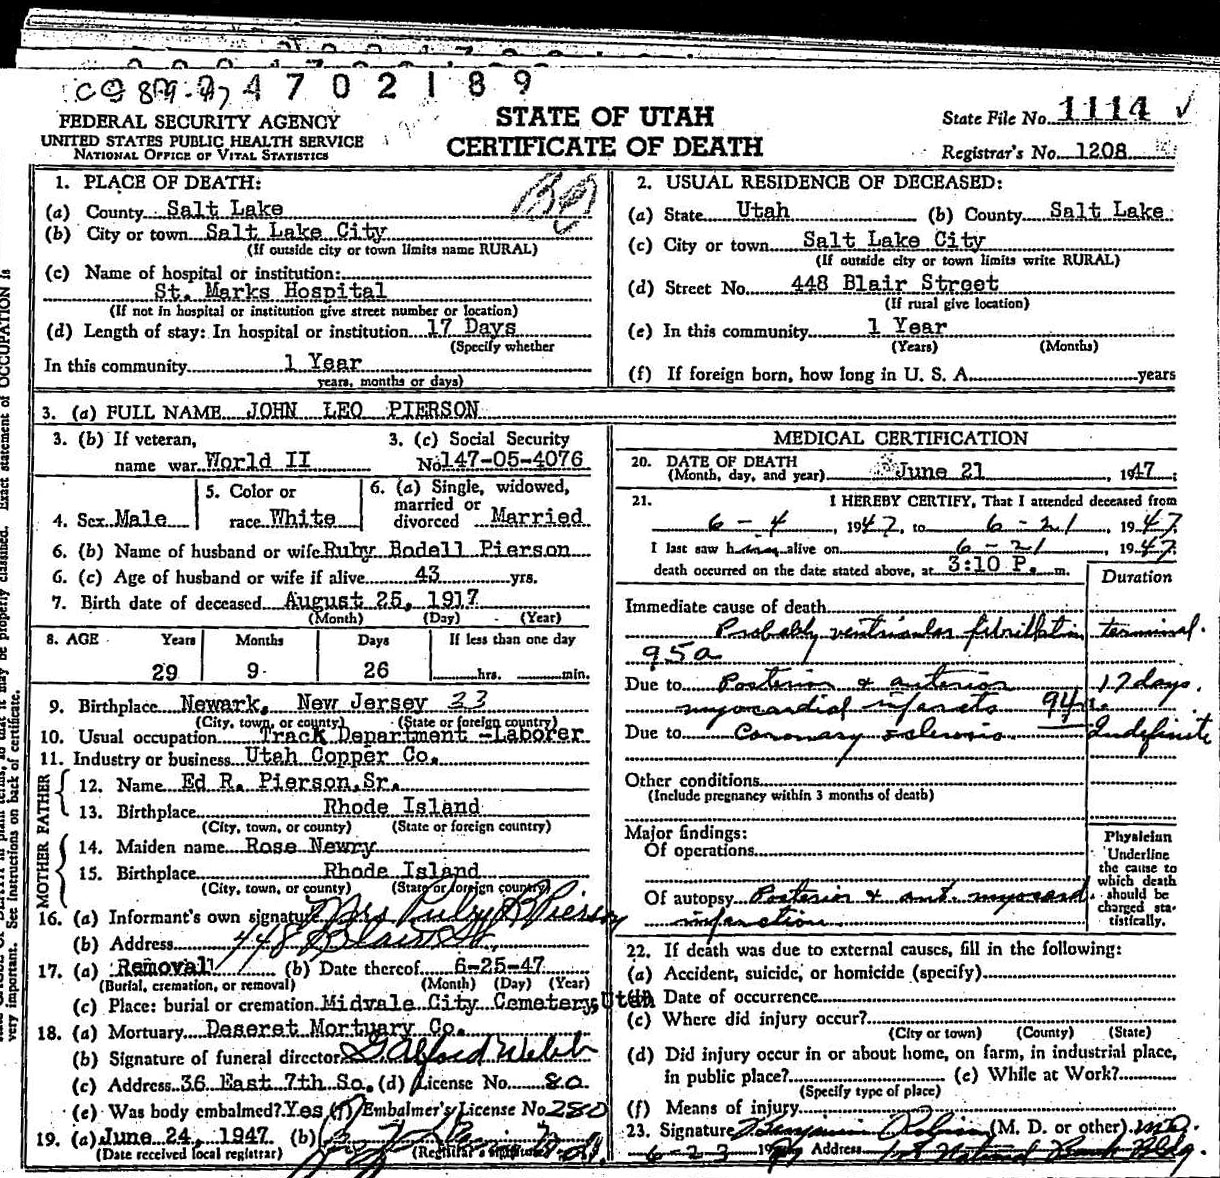 4 7 0 2 1 8 9
FEDERAL SECURITY AGENCY
UNITED STATES PUBLIC HEALTH SERVICE
NATIONAL OFFICE OF VITAL STATISTICS
STATE OF UTAH
CERTIFICATE OF DEATH
State File No. 1114 ✓
Registrar's No. 1208
1. PLACE OF DEATH:
(a) County Salt Lake
(b) City or town Salt Lake City
(If outside city or town limits name RURAL)
(c) Name of hospital or institution:
St. Marks Hospital
(If not in hospital or institution give street number or location)
(d) Length of stay: In hospital or institution 17 Days
(Specify whether
In this community 1 Year
years, months or days)
2. USUAL RESIDENCE OF DECEASED:
(a) State Utah (b) County Salt Lake
(c) City or town Salt Lake City
(If outside city or town limits write RURAL)
(d) Street No. 448 Blair Street
(If rural give location)
(e) In this community 1 Year
(Years) (Months)
(f) If foreign born, how long in U. S. A. years
3. (a) FULL NAME JOHN LEO PIERSON
3. (b) If veteran, name war World II
3. (c) Social Security No 147-05-4076
4. Sex Male
5. Color or race White
6. (a) Single, widowed, married or divorced Married
6. (b) Name of husband or wife Ruby Bodell Pierson
6. (c) Age of husband or wife if alive 43 yrs.
7. Birth date of deceased August 25, 1917
(Month) (Day) (Year)
8. AGE Years Months Days If less than one day
29 9 26 hrs. min.
9. Birthplace Newark, New Jersey 33
(City, town, or county) (State or foreign country)
10. Usual occupation Track Department -Laborer
11. Industry or business Utah Copper Co.
FATHER
12. Name Ed R. Pierson, Sr.
13. Birthplace Rhode Island
(City, town, or county) (State or foreign country)
MOTHER
14. Maiden name Rose Newry
15. Birthplace Rhode Island
(City, town, or county) (State or foreign country)
16. (a) Informant's own signature Mrs Ruby B Pierson
(b) Address 448 Blair St.
17. (a) Removal (b) Date thereof 6-25-47
(Burial, cremation, or removal) (Month) (Day) (Year)
(c) Place: burial or cremation Midvale City Cemetery, Utah
18. (a) Mortuary Deseret Mortuary Co.
(b) Signature of funeral director
(c) Address 36 East 7th So. (d) License No. 80
(e) Was body embalmed? Yes (f) Embalmer's License No 280
19. (a) June 24, 1947 (b)
(Date received local registrar) (Registrar's signature)
MEDICAL CERTIFICATION
20. DATE OF DEATH
(Month, day, and year) June 21, 1947
21. I HEREBY CERTIFY, That I attended deceased from
6-4, 1947, to 6-21, 1947.
I last saw him alive on 6-21, 1947.
death occurred on the date stated above, at 3:10 P. m.
Duration
Immediate cause of death
Probably ventricular fibrillation terminal.
95a
Due to Posterior & anterior 17 days.
myocardial infarcts 94
Due to Coronary sclerosis Indefinite
Other conditions
(Include pregnancy within 3 months of death)
Major findings:
Of operations
Of autopsy Posterior & ant. myocard.
infarction
Physician
Underline the cause to which death should be charged statistically.
22. If death was due to external causes, fill in the following:
(a) Accident, suicide, or homicide (specify)
Date of occurrence
(c) Where did injury occur?
(City or town) (County) (State)
(d) Did injury occur in or about home, on farm, in industrial place,
in public place? (e) While at Work?
(Specify type of place)
(f) Means of injury
23. Signature Benjamin (M. D. or other) M.D.
6-23 1947 Address 1st National Bank Bldg.
very important. See instructions on back of certificate.
Exact statement of OCCUPATION is